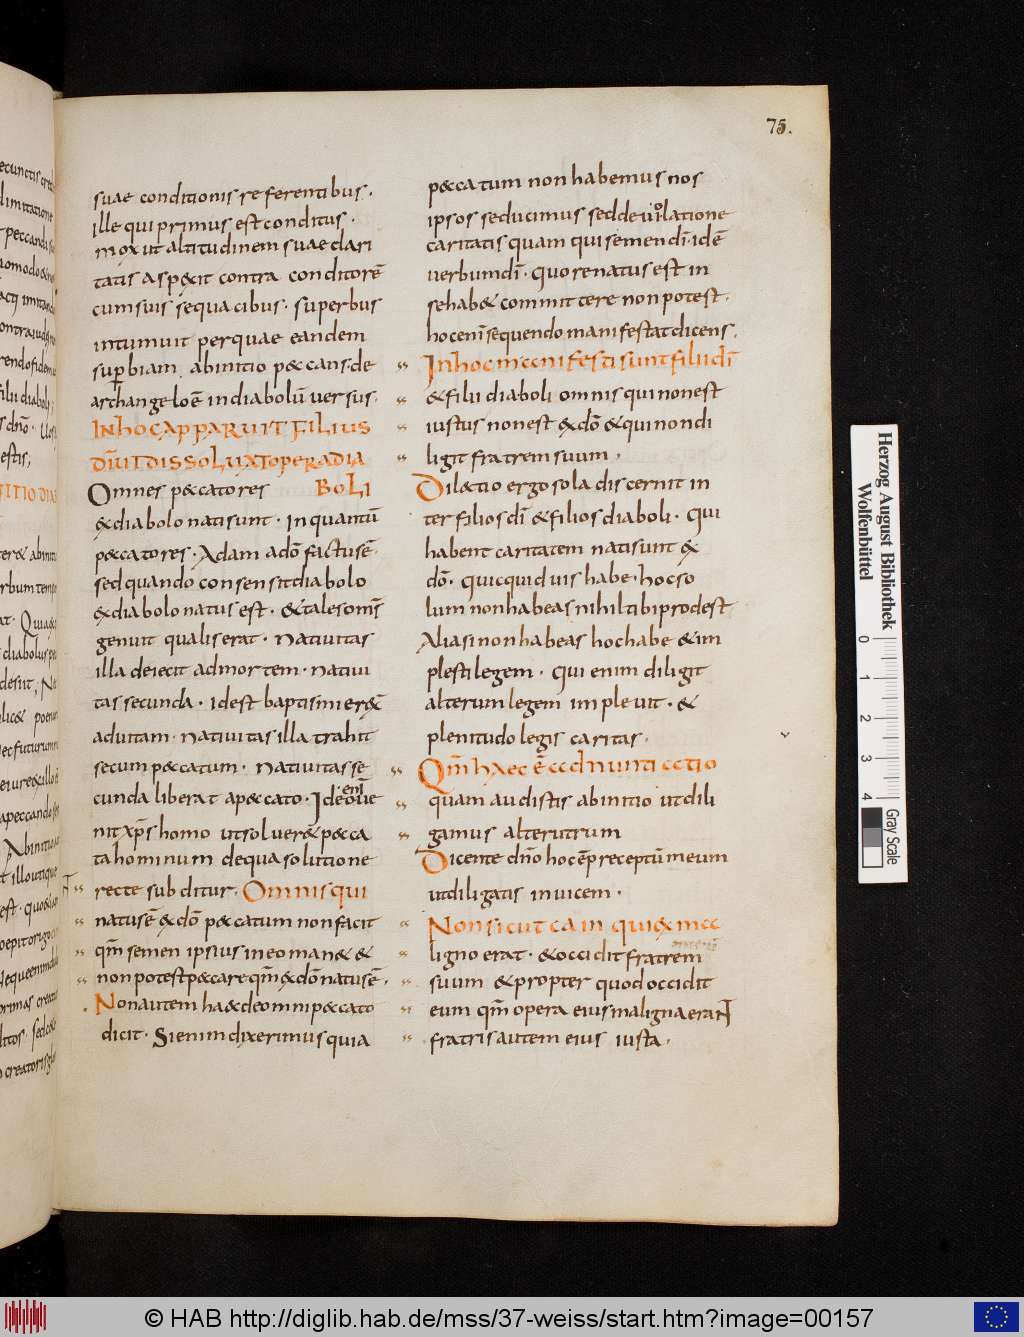 75.
suae conditionis referentibus.
ille qui primus est conditus.
mox ut altitudinem suae clari
tatis asp&cit contra conditorē
cum suis sequacibus. superbus
intumuit per quae eandem
supbiam. ab initio p&cans. de
archangelo ē in diabolū versus.
IN hoc apparuit filius
dī ut dissoluat opera dia
Omnes p&catores boli
&diabolo nati sunt. inquantū
p&catores. Adam a dō factus ē.
sed quando consensit diabolo
&diabolo natus est. & tales om̄s
genuit qualis erat. Nativitas
illa deiecit ad mortem. nativi
tas secunda. id est baptismi erḡ
ad vitam. nativitas illa trahit
secum p&catum. Nativitas se
cunda liberat a p&cato. Ideo enī ve
nit xp̄s homo ut solver& p&ca
ta hominum de qua solutione
recte subditur. Omnis qui
natus ē &dō p&catum non facit
qm̄ semen ipsius in eo man& &
non potest p&care qm̄ &dō natus ē.
Non autem ha&c de omni p&cato
dicit. Si enim dixerimus quia
p&catum non habemus nos
ipsos seducimus sed de violatione
caritatis quam qui semen dī. idē
verbum dī. quo renatus est in
se hab& committere non potest.
hoc enī sequendo manifestat dicens.
In hoc manifesti sunt filii dī
& filii diaboli omnis qui non est
iustus non est &dō & qui non di
ligit fratrem suum.
Dil&tio ergo sola discernit in
ter filios dī & filios diaboli. Qui
habent caritatem nati sunt &
dō. quicquid vis habe. hoc so
lum non habeas nihil tibi prodest.
Alia si non habeas hoc habe & im
plesti legem. Qui enim diligit
alterum legem implevit. &
plenitudo legis caritas.
Qm̄ haec ē adnuntiatio
quam audistis ab initio ut dili
gamus alterutrum
Dicente dn̄o hoc ē p receptū meum
ut diligatis invicem.
Non sicut cain qui &ma
ligno erat. & occidit fratrem
suum & propter quod occidit
eum qm̄ opera eius maligna erant
fratris autem eius iusta.
Herzog August Bibliothek
Wolfenbüttel
0 1 2 3 4
Gray Scale
© HAB http://diglib.hab.de/mss/37-weiss/start.htm?image=00157